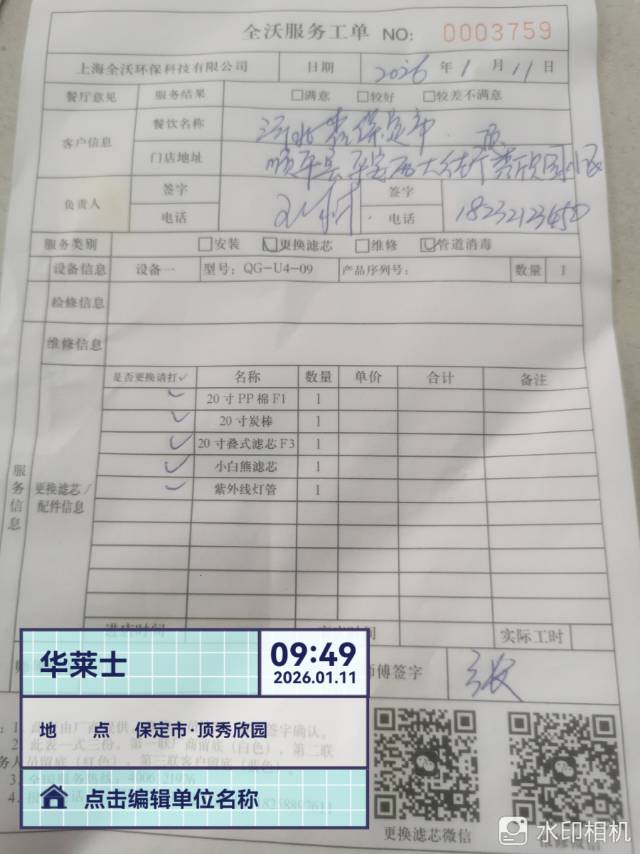 全沃服务工单 NO: 0003759
上海全沃环保科技有限公司 日期 2026年1月11日
餐厅意见 服务结果 □满意 □较好 □较差不满意
客户信息 餐饮名称 河北省保定市
门店地址 顺平县平安西大街顶秀欣园小区
负责人 签字 签字
电话 电话 18232123450
服务类别 □安装 ☑更换滤芯 □维修 ☑管道消毒
设备信息 设备一 型号: QG-U4-09 产品序列号: 数量 1
检修信息
维修信息
服务信息
更换滤芯/配件信息
是否更换请打✓ 名称 数量 单价 合计 备注
✓ 20寸PP棉F1 1
✓ 20寸炭棒 1
✓ 20寸叠式滤芯F3 1
✓ 小白熊滤芯 1
✓ 紫外线灯管 1
进店时间 实际工时
师傅签字
华莱士 09:49
2026.01.11
地 点 保定市·顶秀欣园
点击编辑单位名称
更换滤芯微信
水印相机